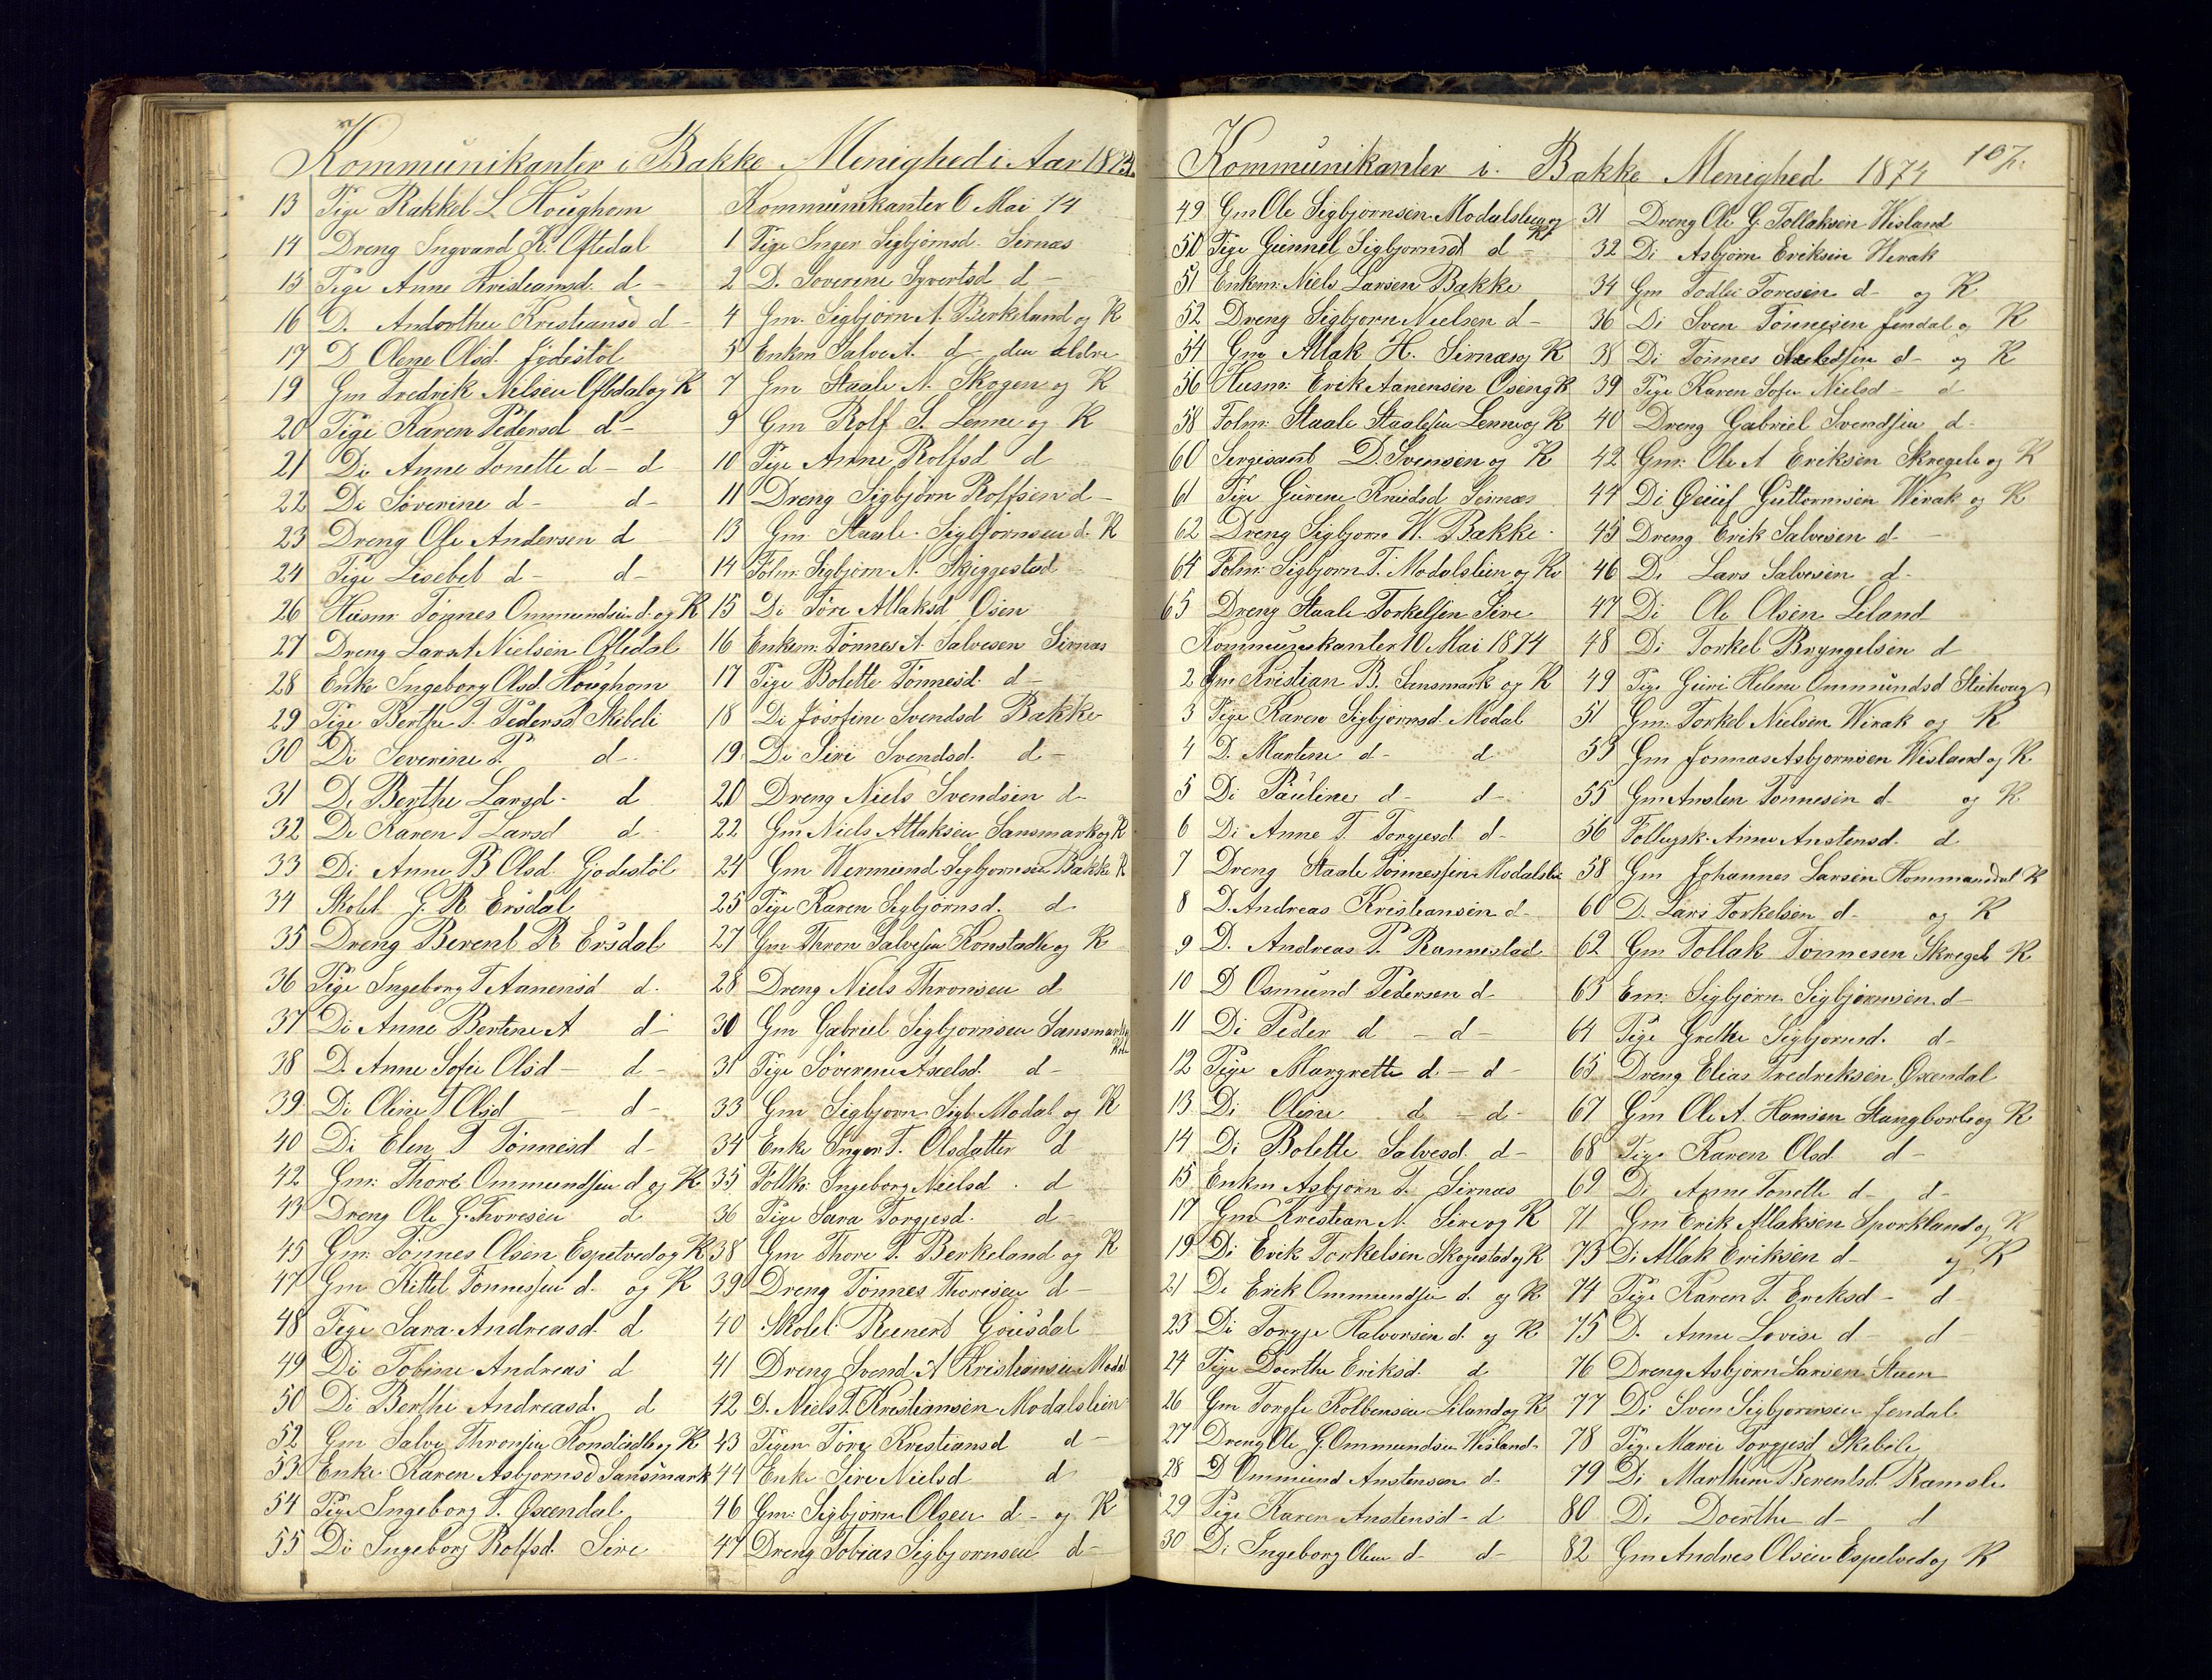 Kommunikanter i Bakke Menighed i Aar 1873.
13 Pige Rakkel L Houghom
14 Dreng Ingvard K. Oftedal
15 Pige Anne Kristiansd. d -
16 D. Andorthe Kristiansd d -
17 D Olene Olsd. Jödestöl
19 Gm Fredrik Nelsen Oftedal og K
20 Pige Karen Pedersd d -
21 Di Anne Tonette d - d
22 Di Söverine d - d -
23 Dreng Ole Andersen d
24 Pige Lisebet d - d -
26 Husm Tönnes Ommundsen d. og K
27 Dreng Lars A Nielsen Oftedal
28 Enke Ingeborg Olsd. Houghom
29 Pige Berthe T. Pedersd Skibeli
30 Di Severine P. d -
31 D. Berthe Larsd. d
32 Di Karen T Larsd d -
33 Di Anne B Olsd. Gjodestöl
34 Skolel G. R Ersdal
35 Dreng Berent R Ersdal
36 Pige Ingeborg T Aanensd d.
37 Di Anne Bertine A d -
38 D. Anne Sofie Olsd - d -
39 Di Oline T Olsd - d -
40 Di Elen T Tönnesd d -
42 Gm: Thore Ommundsen d og K
43 Dreng Ole G. Thoresen d
45 Gm: Tönnes Olsen Espetved og K
47 Gm Kittel Tönnessen d. og K
48 Pige Sara Andreasd. d
49 Di Tobine Andreas d
50 Di Berthe Andreasd. d
52 Gm Salve Thronsen Konstadli og K
53 Enke Karen Asbjornsd Sansmark
54 Pige Ingeborg T. Øxendal
55 Di Ingeborg Rolfsd. Sire
Kommunikanter 6 Mai 74
1 Pige Inger Sigbjörnsd. Sirnas
2 D. Soverine Syvertsd d -
4 Gm. Sigbjörn A. Berkeland og K
5 Enkm Salve A. d - den ældre
7 Gm Staale N. Skogen og K
9 Gm Rolf S. Lenne og K
10 Pige Anne Rolfsd d
11 Dreng Sigbjörn Rolfsen d -
13 Gm. Staale Sigbjörnsen d. K
14 Folm: Sigbjörn N. Skiggestad
15 Di Töre Atlaksd Osen
16 Enkem: Tönnes A. Salvesen Sirnas
17 Pige Bolette Tönnesd. d -
18 Di Josefine Svendsd Bakke
19 Di Siri Svendsd. d -
20 Dreng Niels Svendsen d -
22 Gm Niels Atlaksen Sansmark og K
24 Gm Wermund Sigbjornsen Bakke K
25 Pige Karen Sigbjörnsd. d
27 Gm Thron Salvesen Konstadli og K
28 Dreng Niels Thronsen d
30 Gm Gabriel Sigbjornsen Sansmark
31 Pige Söverene Axelsd. d -
33 Gm Sigbjorn Sigb. Modal og K
34 Enke Inger T. Olsdatter d
35 Follk: Ingeborg Nielsd . d
36 Pige Sara Torgjesd. d -
38 Gm Thore P. Berkeland og K
39 Dreng Tönnes Thoresen d -
40 Skolel. Reenert Gousdal
41 Dreng Svend A Kristiansen Modal
42 D. Niels T. Kristiansen Modalslien
43 Pigen Töre Kristiansd d -
44 Enke Siri Nielsd d
46 Gm: Sigbjörn Olsen d - og K
47 Dreng Tobias Sigbjornsen d -
Kommunikanter i Bakke Menighed 1874 107.
49 Gm Ole Sigbjornsen Modalslien og
K
50 Pige Gunnel Sigbjornsd d -
51 Enkem: Niels Larsen Bakke
52 Dreng Sigbjorn Nielsen d -
54 Gm Atlak H. Sirnas og K
56 Husm: Erik Aanensen Osen og K
58 Folm: Staale Staalesen Lenne og K
60 D. Svensen og K
61 Pige Gurene Knudsd Sirnas
62 Dreng Sigbjorn W. Bakke
64 Folm: Sigbjorn T. Modalslien og K
65 Dreng Staale Torkelsen Sire
Kommunikanter 10 Mai 1874
2 Gm Kristian B. Sansmark og K
3 Pige Karen Sigbjörnsd. Modal
4 D. Martine d - d
5 Di Pauline d - d -
6 Di Anne T. Torgjesd. d -
7 Dreng Staale Tönnessen Modalsli
8 D. Andreas Kristiansen d -
9 D. Andreas P. Rannestad
10 D Osmund Pedersen d -
11 Di Peder d - d -
12 Pige Margrette d - d -
13 Di Olene d - d -
14 Di Bolette Salvesd. d -
15 Enkm Asbjorn T. Sirnas
17 Gm Kristian N. Sire og K
19 Di Erik Torkelsen Skogestad og K
21 Di Erik Ommundsen d. og K
23 Di Torgje Halvorsen d. og K
24 Pige Doerthe Eriksd. d
26 Gm Torgje Kolbensen Liland og K
27 Dreng Ole G. Ommundsen Wisland
28 D Ommund Anstensen d -
29 Pige Karen Anstensd - d
30 D: Ingeborg Oline d - d -
31 Dreng Ole G. Tollaksen Wisland
32 Di Asbjörn Eriksen Wirak
34 Gm Todlei Toresen d - og K
36 Di Sven Tönnesen Jendal og K
38 Di Tönnes d - og K
39 Pige Karen Sofie Nielsd - d
40 Dreng Gabriel Svendsen d -
42 Gm: Ole A Eriksen Skregeli og K
44 Di Guttormsen Wirak og K
45 Dreng Erik Salvesen d -
46 D. Lars Salvesen d -
47 Di Ole Olsen Liland
48 Di Torkel Bryngelsen d
49 Pige Guri Helene Ommundsd
51 Gm: Torkel Nielsen Wirak og K
53 Gm Jonnas Asbjornsen Wisland og K
55 Gm Ansten Tonnesen d. og K
56 Anne Anstensd. d
58 Gm Johannes Larsen Hommansdal K
60 D. Lars Torkelsen d - og K
62 Gm Tollak Tonnesen Skregeli K
63 Em: Sigbjorn Sigbjørnsen d -
64 Pige Grethe Sigbjornsd. d -
65 Dreng Elias Fredreksen Øxendal
67 Gm Ole A. Hansen Stangborli og K
68 Pige Karen Olsd. d -
69 Di Anne Tonette d - d -
71 Gm Erik Atlaksen Sporkland og K
73 Di Atlak Eriksen d - og K
74 Pige Karen T. Eriksd - d -
75 D. Anne Lovise d - d -
76 Dreng Asbjörn Larsen Stuen
77 Di Sven Sigbjornsen Jendal
78 Pig. Marie Torgjesd Skebeli
79 Di Marthine Berentsd. Ramsli
80 Di Doerthe d - d
82 Gm Andres Olsen Espetved og K